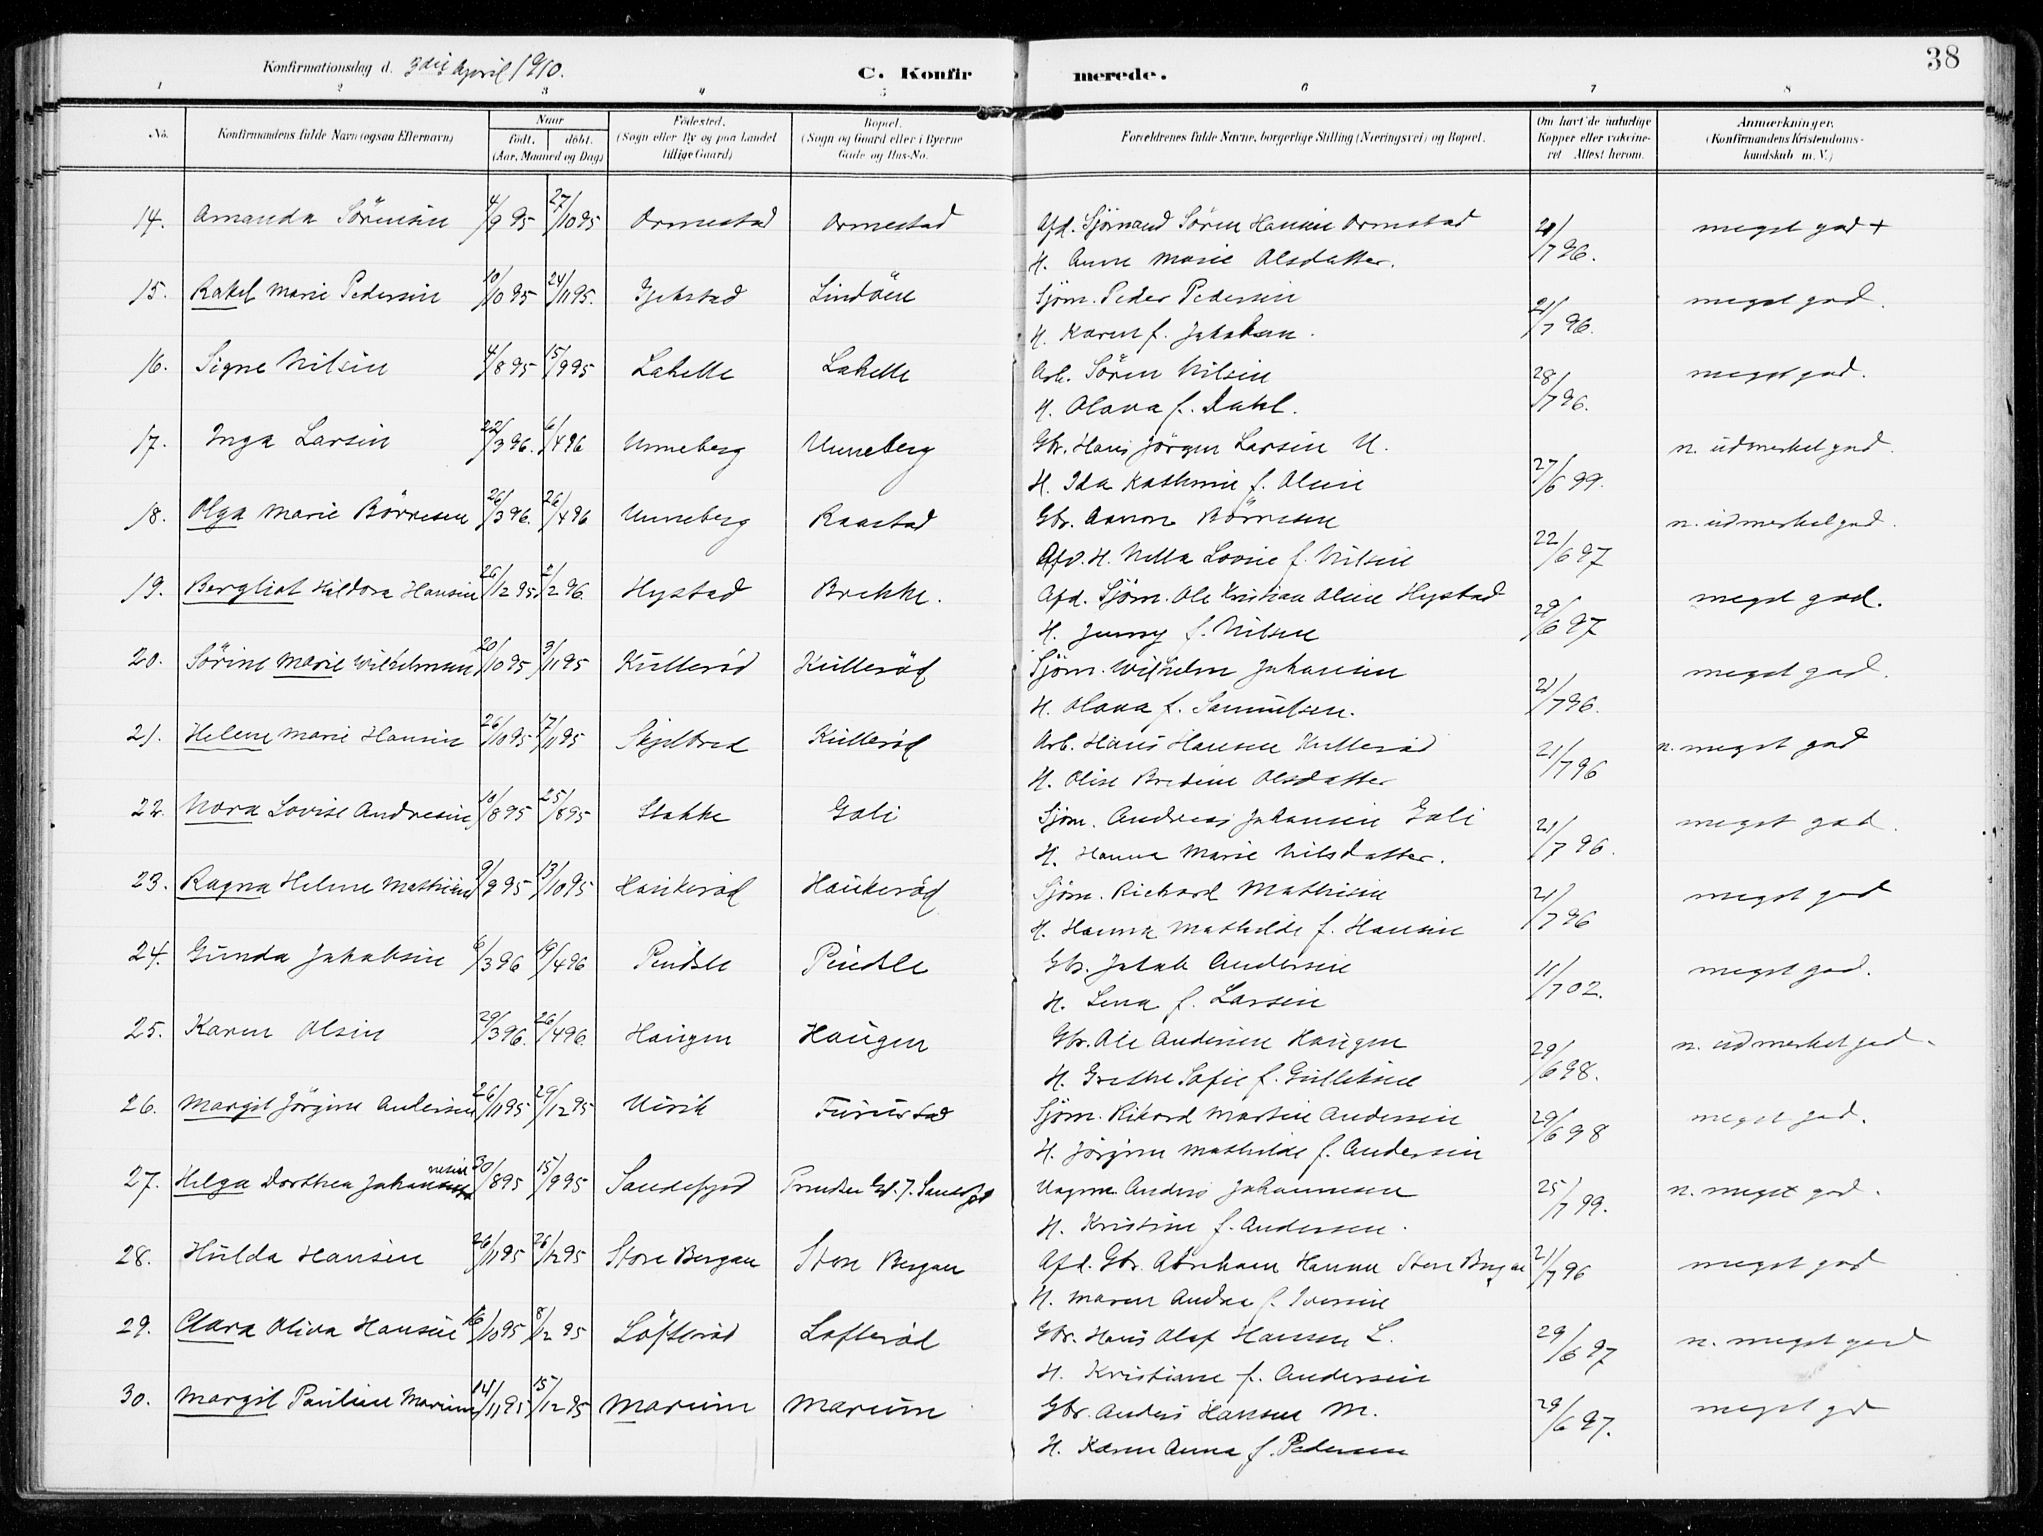 38
Konfirmationsdag d. 3die April 1910.
C. Konfirmerede.
1 2 3 4 5 6 7 8
No. Konfirmandens fulde Navn (ogsaa Efternavn) Naar født, døbt. (Aar, Maaned og Dag) Fødested. (Sogn eller By og paa Landet tillige Gaard) Bopæl. (Sogn og Gaard eller i Byerne Gade og Hus-No. Forældrenes fulde Navne, borgerlige Stilling (Næringsvei) og Bopæl. Om havt de naturlige Kopper eller vakcineret. Attest herom. Anmærkninger. (Konfirmandens Kristendomskundskab m. V.)
14. Amanda Sörensen 4/9 95 27/10 95 Ormestad Ormestad Afd. Sjömand Sören Hansen Ormestad 21/7 96. meget god +
H. Anne Marie Olsdatter.
15. Rakel Marie Pedersen 10/10 95 24/11 95. Gjekstad Lindöen Sjöm. Peder Pedersen 21/7 96. meget god.
H. Karen f. Jakobsen.
16. Signe Nilsen 4/8 95 15/9 95 Lakelle Lakelle Arb. Sören Nilsen 28/7 96. meget god.
H. Olava f. Dahl.
17. Inga Larsen 22/3 96. 6/4 96 Unneberg Unneberg Gbr. Hans Jörgen Larsen U. 27/6 99. n. udmerket god.
H. Ida Kathrine f. Olsen
18. Olga Marie Börresen 26/3 96. 26/4 96 Unneberg Raastad Gbr. Anton Börresen 22/6 97 n. udmerket god.
Afd. H. Nella Lovise f. Nilsen
19. Bergliot Haldora Hansen 26/12 95 2/2 96. Hystad Brekke. Afd. Sjöm. Ole Kristian Olsen Hystad 29/6 97 meget god.
H. Jenny f. Nilsen
20. Sörine Marie Wilhelmsen 20/10 95 3/11 95 Kulleröd Kulleröd Sjöm. Wilhelm Johansen 21/7 96. meget god.
H. Olava f. Samuelsen.
21. Helene Marie Hansen 26/10 95 17/11 95 Skjelbred Kulleröd Arb. Hans Hansen Kulleröd 21/7 96 n. meget god
H. Olise Bredine Olsdatter
22. Nora Lovise Andresen 10/8 95 25/8 95 Stakke Gali Sjöm. Andreas Johansen Gali 21/7 96. meget god.
H. Hanna Marie Nilsdatter.
23. Ragna Helene Mathisen 9/9 95 13/10 95 Haukeröd Haukeröd Sjöm. Richard Mathisen 21/7 96 meget god
H. Hanna Mathilde f. Hansen
24. Gunda Jakobsen 6/3 96 19/4 96 Pindsle Pindsle Gbr. Jakob Andersen 11/7 02. meget god.
H. Lena f. Larsen
25. Karen Olsen 29/3 96. 26/4 96. Haugen Haugen Gbr. Ole Andersen Haugen 29/6 98. n. udmerket god.
H. Grethe Sofie f. Gulliksen
26. Margit Jörgine Andersen 26/11 95 29/12 95 Ulvik Furustad Sjöm. Rikard Martin Andersen 29/6 98 meget god.
H. Jörgine Mathilde f. Andersen
27. Helga Dorthea Johannesen 30/8 95 15/9 95 Sandefjord Sandefj. Vognm. Anders Johannesen 25/7 99. n. meget god.
H. Kristine f. Andersen.
28. Hulda Hansen 26/11 95 26/12 95 Store Bergan Store Bergan Afd. Gbr. Abraham Hansen Store Bergan 21/7 96 meget god
H. Maren Andrea f. Iversen
29. Clara Oliva Hansen 16/10 95 8/12 95 Löfteröd Lofteröd Gbr. Hans Olaf Hansen L. 29/6 97 n. meget god
H. Kristiane f. Andersen
30. Margit Pauline Marum 14/11 95 15/12 95 Marum Marum Gbr. Anders Hansen M. 29/6 97. meget gd
H. Karen Anna f. Pedersen